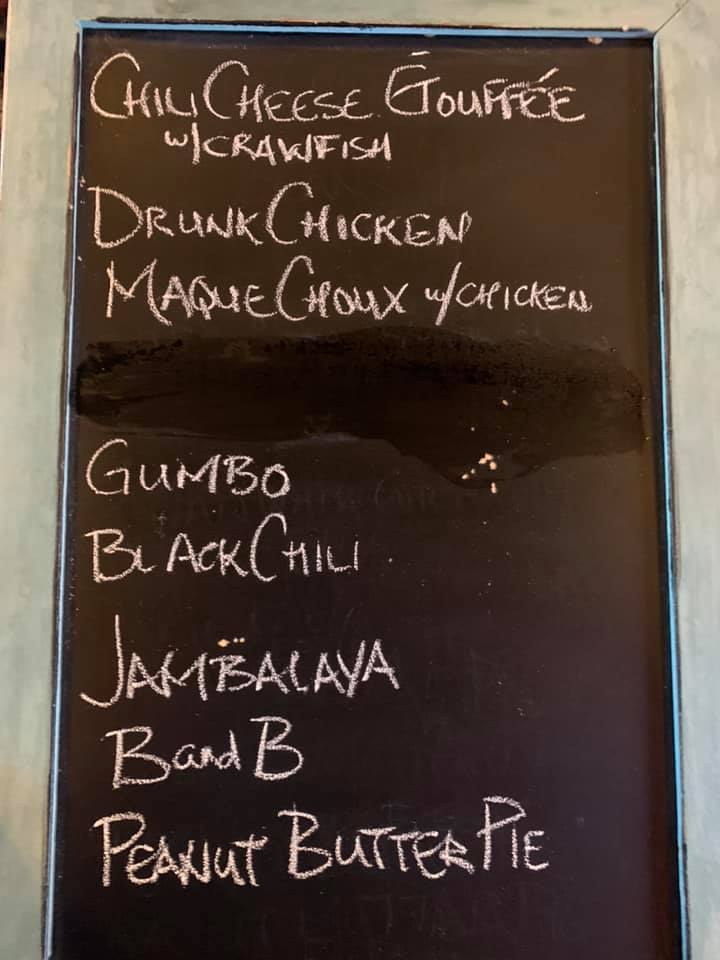 CHILI CHEESE ÉTOUFFÉE
w/CRAWFISH
DRUNK CHICKEN
MAQUE CHOUX w/CHICKEN
GUMBO
BLACK CHILI
JAMBALAYA
B and B
PEANUT BUTTER PIE